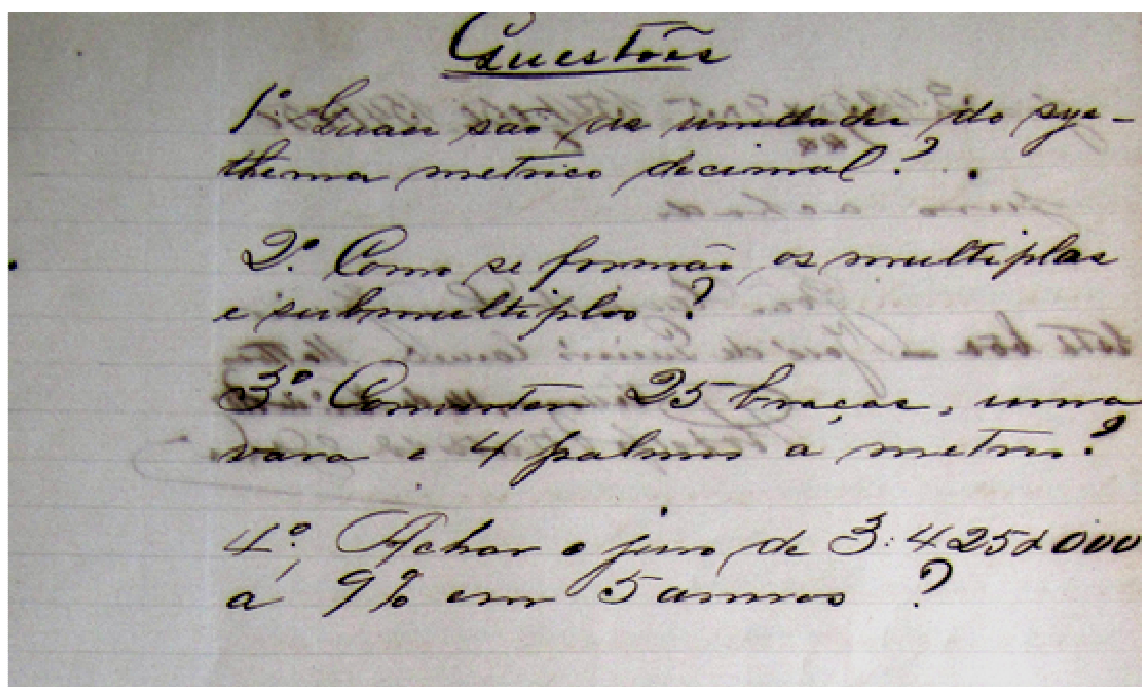 Questões
1º Quaes são as unidades do sys-
thema metrico decimal?
2º Como se formão os multiplos
e submultiplos?
3º Converter 25 braças, uma
vara e 4 palmos a metros?
4º Achar o juro de 3:425$000
á 9% em 5 annos?